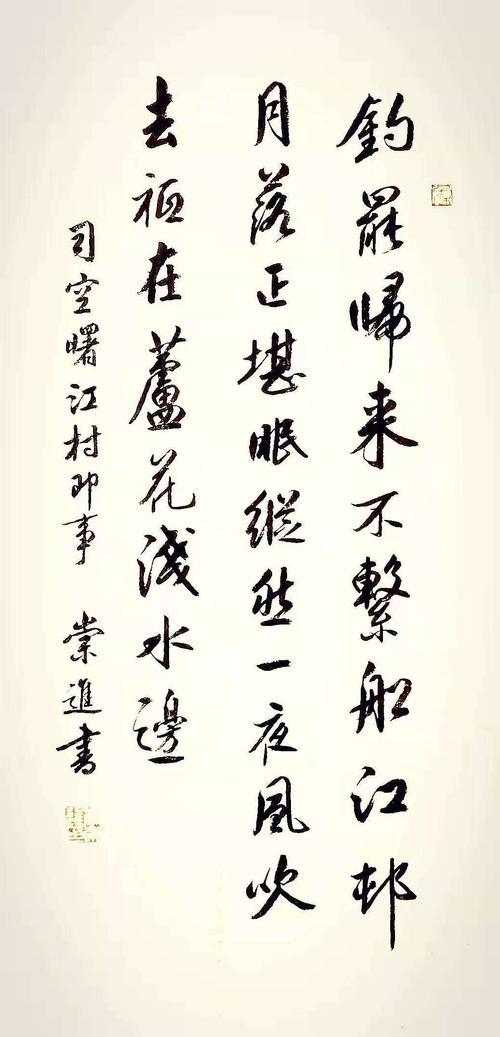 釣罷歸来不繫船江邨
月落正堪眠縱然一夜風吹
去祗在蘆花淺水邊
司空曙江村即事 崇進書